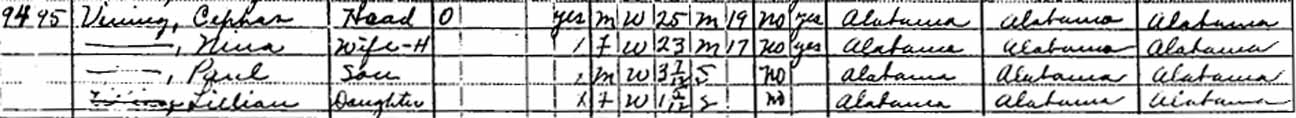 94 95 Vining, Cephas Head O yes M W 25 M 19 no yes Alabama Alabama Alabama
———, Nina Wife-H F W 23 M 17 no yes Alabama Alabama Alabama
———, Paul Son M W 3 7/12 S no Alabama Alabama Alabama
Lillian Daughter F W 1 S no Alabama Alabama Alabama